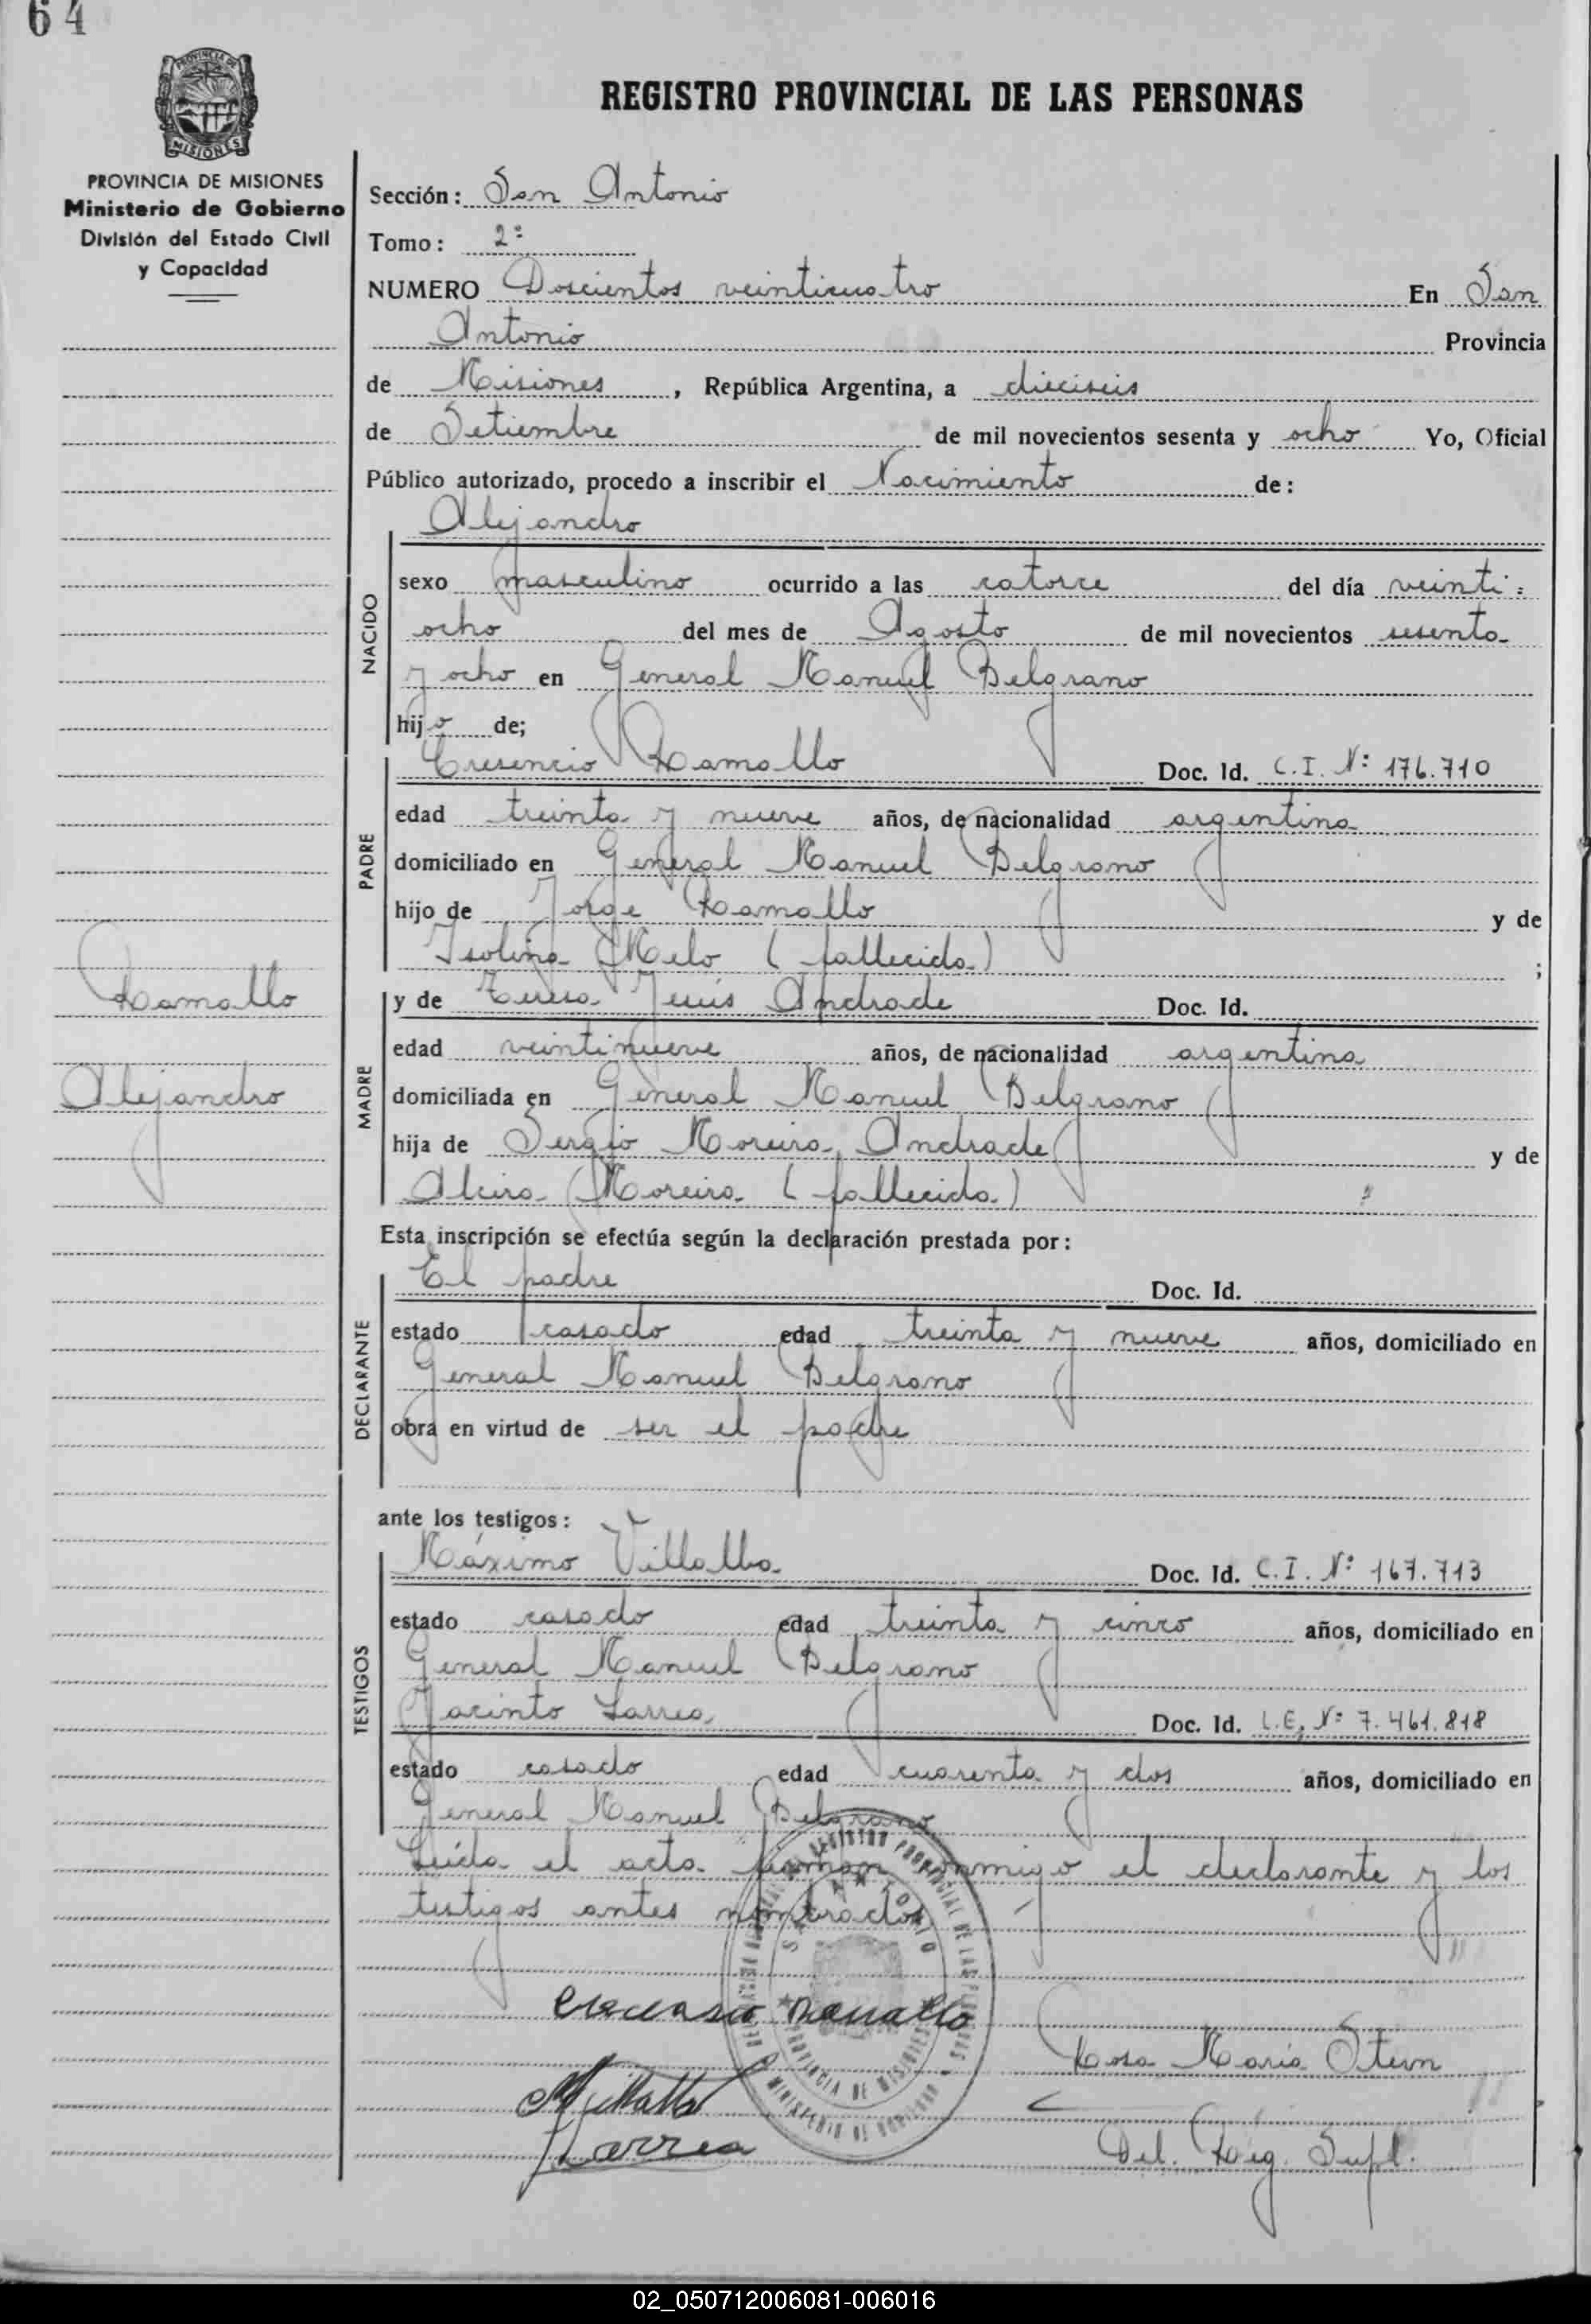 64
PROVINCIA DE
MISIONES
PROVINCIA DE MISIONES
Ministerio de Gobierno
División del Estado Civil
y Capacidad
Ramallo
Alejandro
REGISTRO PROVINCIAL DE LAS PERSONAS
Sección: San Antonio
Tomo: 2º
NUMERO Doscientos veinticuatro En San
Antonio Provincia
de Misiones, República Argentina, a dieciseis
de Setiembre de mil novecientos sesenta y ocho Yo, Oficial
Público autorizado, procedo a inscribir el Nacimiento de:
Alejandro
NACIDO
sexo masculino ocurrido a las catorce del día veinti=
ocho del mes de Agosto de mil novecientos sesenta
y ocho en General Manuel Belgrano
hijo de;
PADRE
Cresencio Ramallo Doc. Id. C.I. Nº 176.710
edad treinta y nueve años, de nacionalidad argentina
domiciliado en General Manuel Belgrano
hijo de Jorge Ramallo y de
Isolina Melo (fallecida) ;
MADRE
y de Teresa Jesús Andrade Doc. Id.
edad veintinueve años, de nacionalidad argentina
domiciliada en General Manuel Belgrano
hija de Sergio Moreira Andrade y de
Alcira Moreira (fallecida)
Esta inscripción se efectúa según la declaración prestada por:
DECLARANTE
El padre Doc. Id.
estado casado edad treinta y nueve años, domiciliado en
General Manuel Belgrano
obra en virtud de ser el padre
ante los testigos:
TESTIGOS
Máximo Villalba Doc. Id. C.I. Nº 167.713
estado casado edad treinta y cinco años, domiciliado en
General Manuel Belgrano
Jacinto Larrea Doc. Id. L.E. Nº 7.461.818
estado casado edad cuarenta y dos años, domiciliado en
General Manuel Belgrano
Leída el acta firman conmigo el declarante y los
testigos antes nombrados
REGISTRO PROVINCIAL DE LAS PERSONAS
SAN ANTONIO
PROVINCIA DE MISIONES
MINISTERIO DE GOBIERNO
Cresensio Ramallo
Rosa María Stern
MVillalba
Larrea
Del. Reg. Supl.
02_050712006081-006016